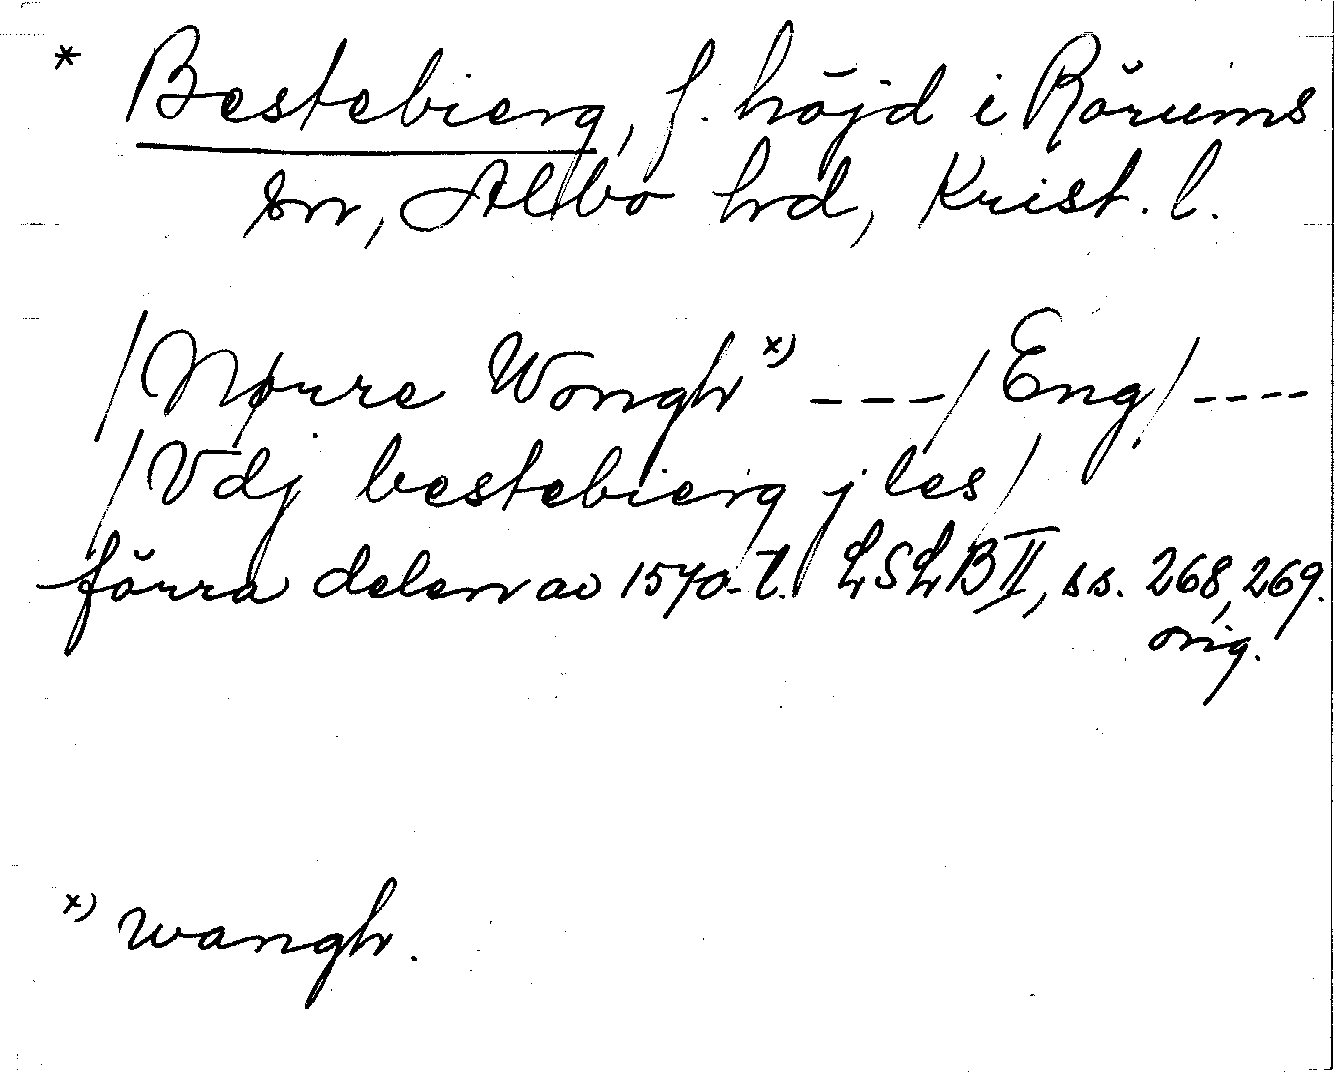 * Bestebierg, f. höjd i Rörums
sn, Albo hd, Krist. l.
/Nørre Wongh x) ---/Eng/----
/Vdj bestebierg j les/
förra delen av 1570-t. LSLB II, ss. 268, 269.
orig.
x) wangh.